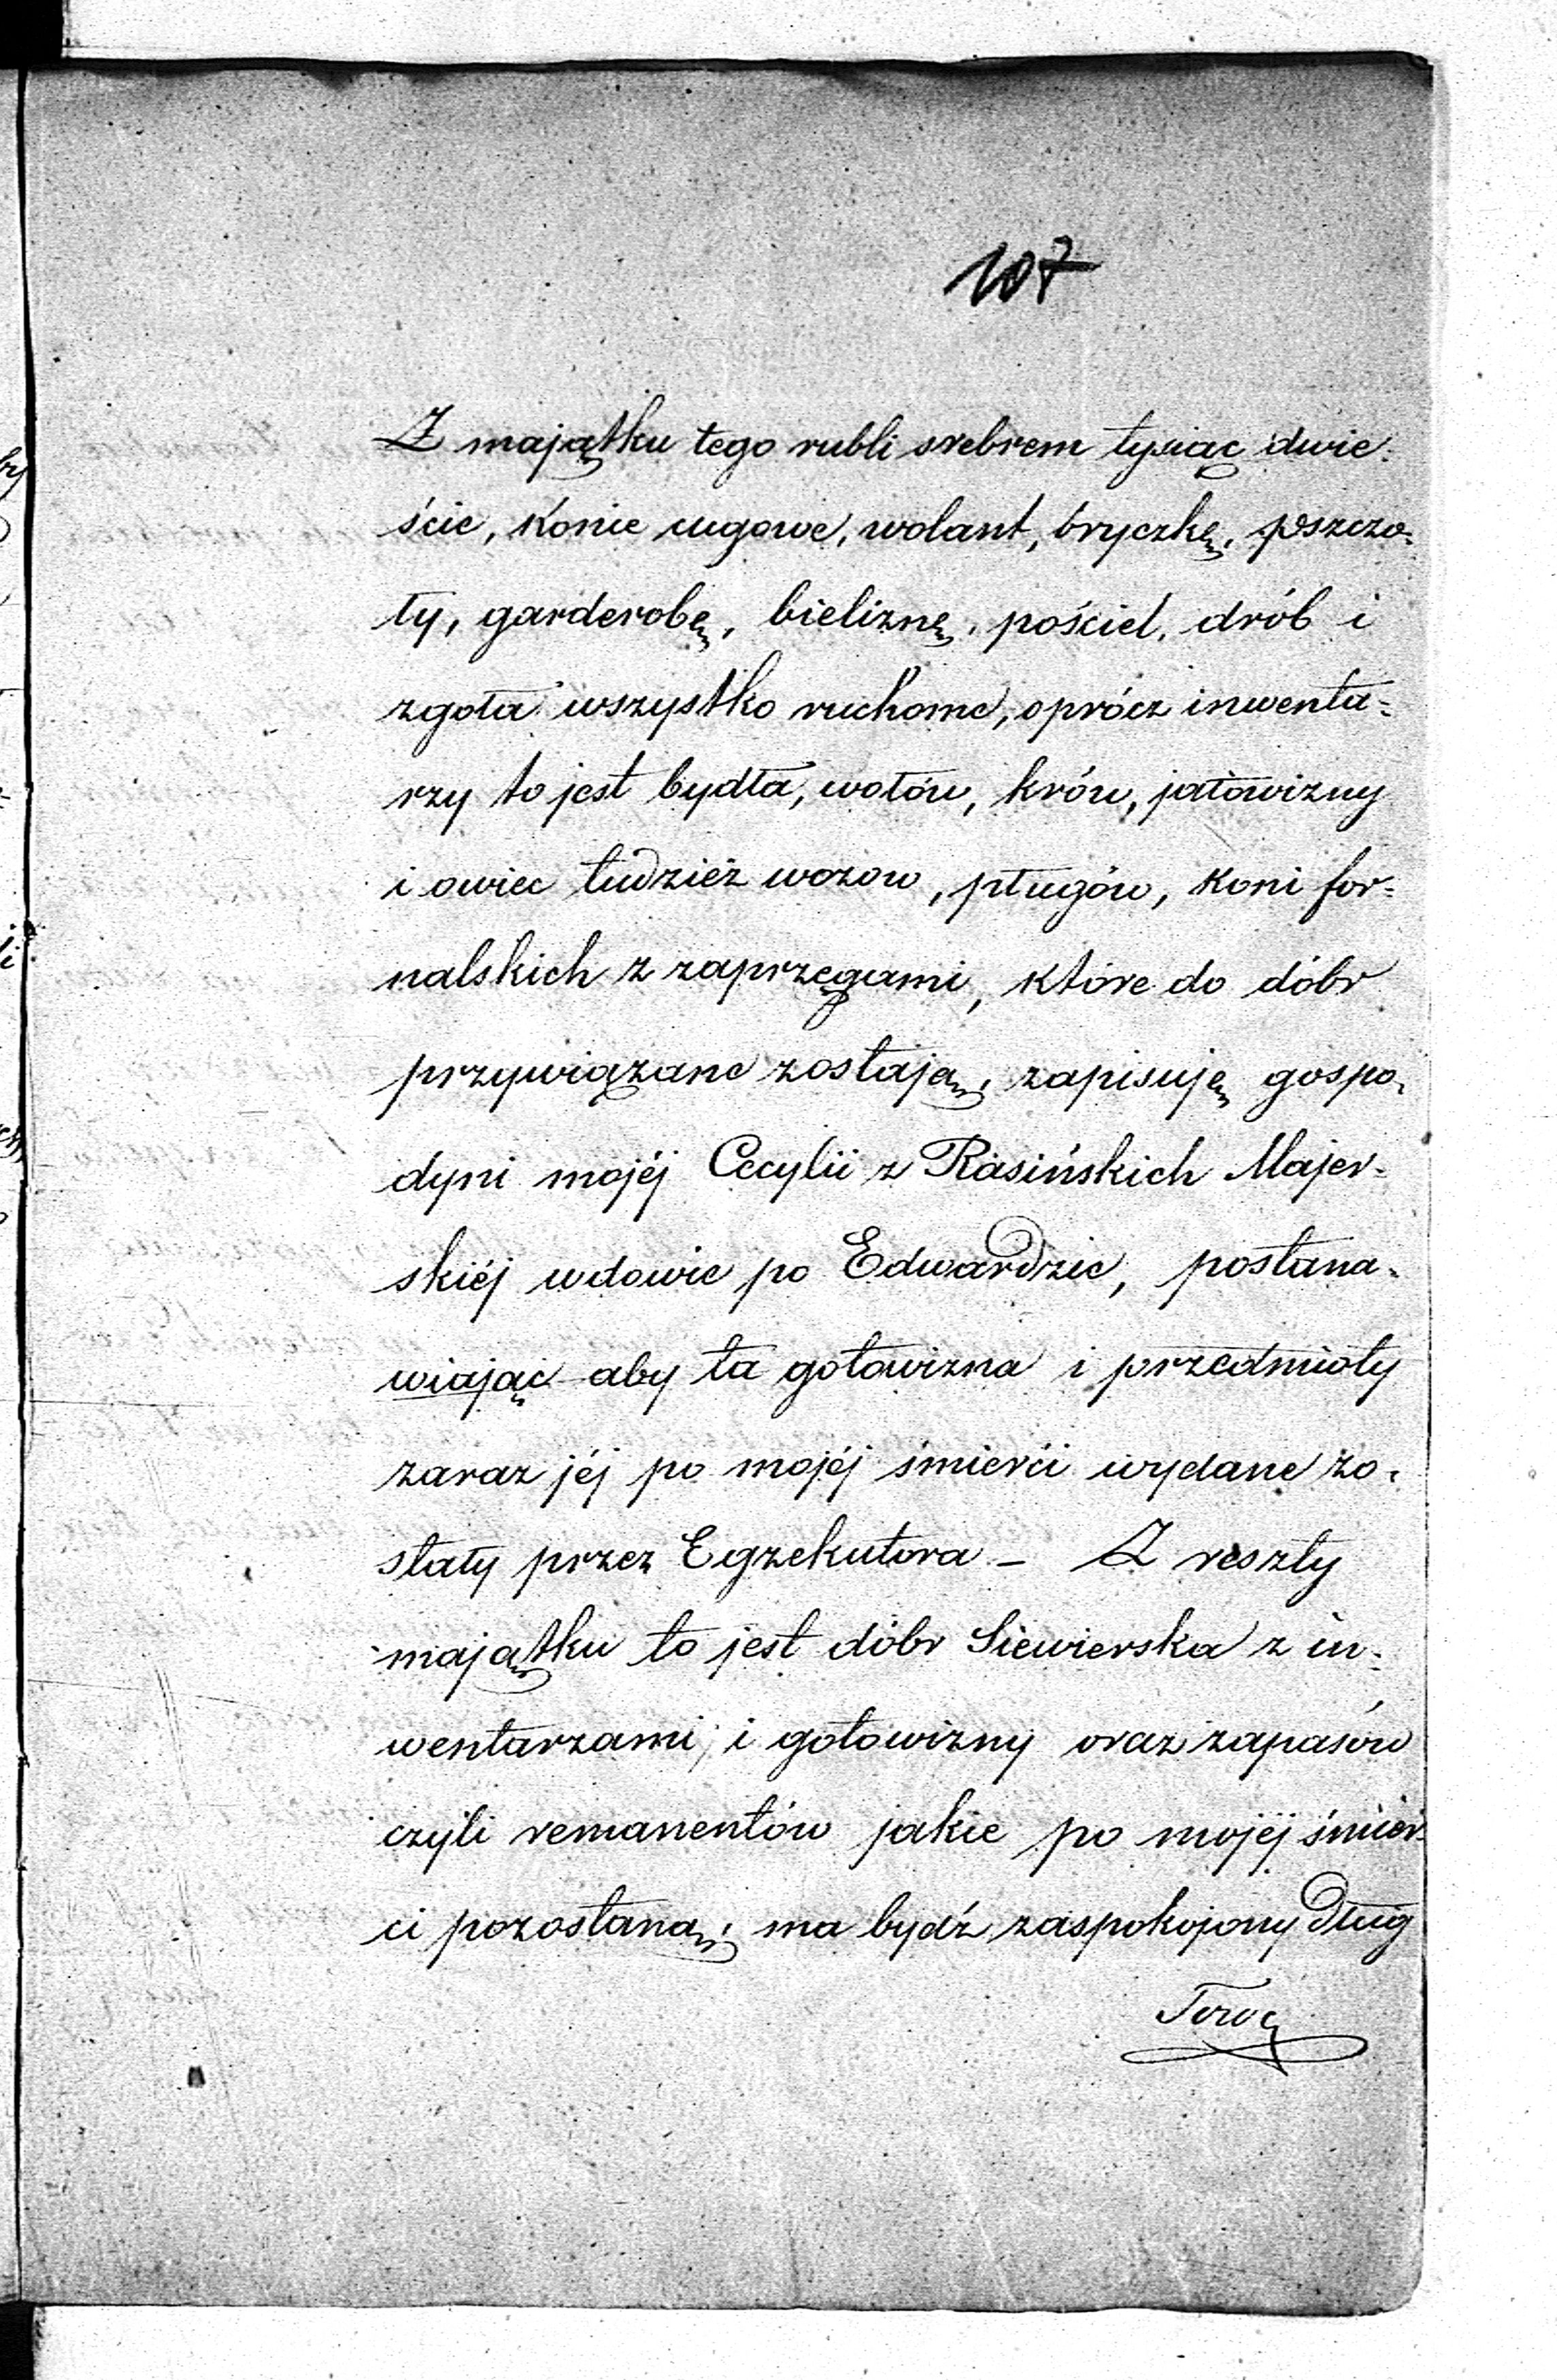 107
Z majątku tego rubli srebrem tysiąc dwie=
ście, konie cugowe, wolant, bryczkę, pszczo=
ły, garderobę, bieliznę, pościel, drób i
zgoła wszystko ruchome, oprócz inwenta=
rzy to jest bydła, wołów, krów, jałowizny
i owiec tudzież wozow, pługów, koni for=
nalskich z zaprzęgami, które do dóbr
przywiązane zostają, zapisuję gospo=
dyni mojéj Cecylii z Rasińskich Majer=
skiéj wdowie po Edwardzie, postana=
wiając aby ta gotowizna i przedmioty
zaraz jéj po mojéj śmierći wydane zo=
stały przez Egzekutora – Z reszty
majątku to jest dóbr Siewierska z in=
wentarzami, i gotowizny oraz zapasów
czyli remanentów jakie po mojéj śmier=
ci pozostaną, ma bydź zaspokojony dług